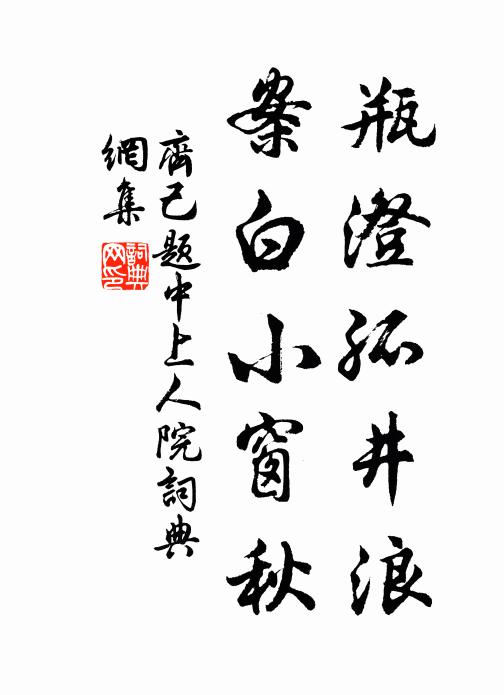 瓶澄孤井浪
案白小窗秋
齊己题中上人院詞典
網集
詞典
网印